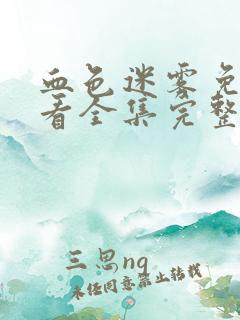 血色迷雾免
看全集完整
三思ng
未经同意禁止转载